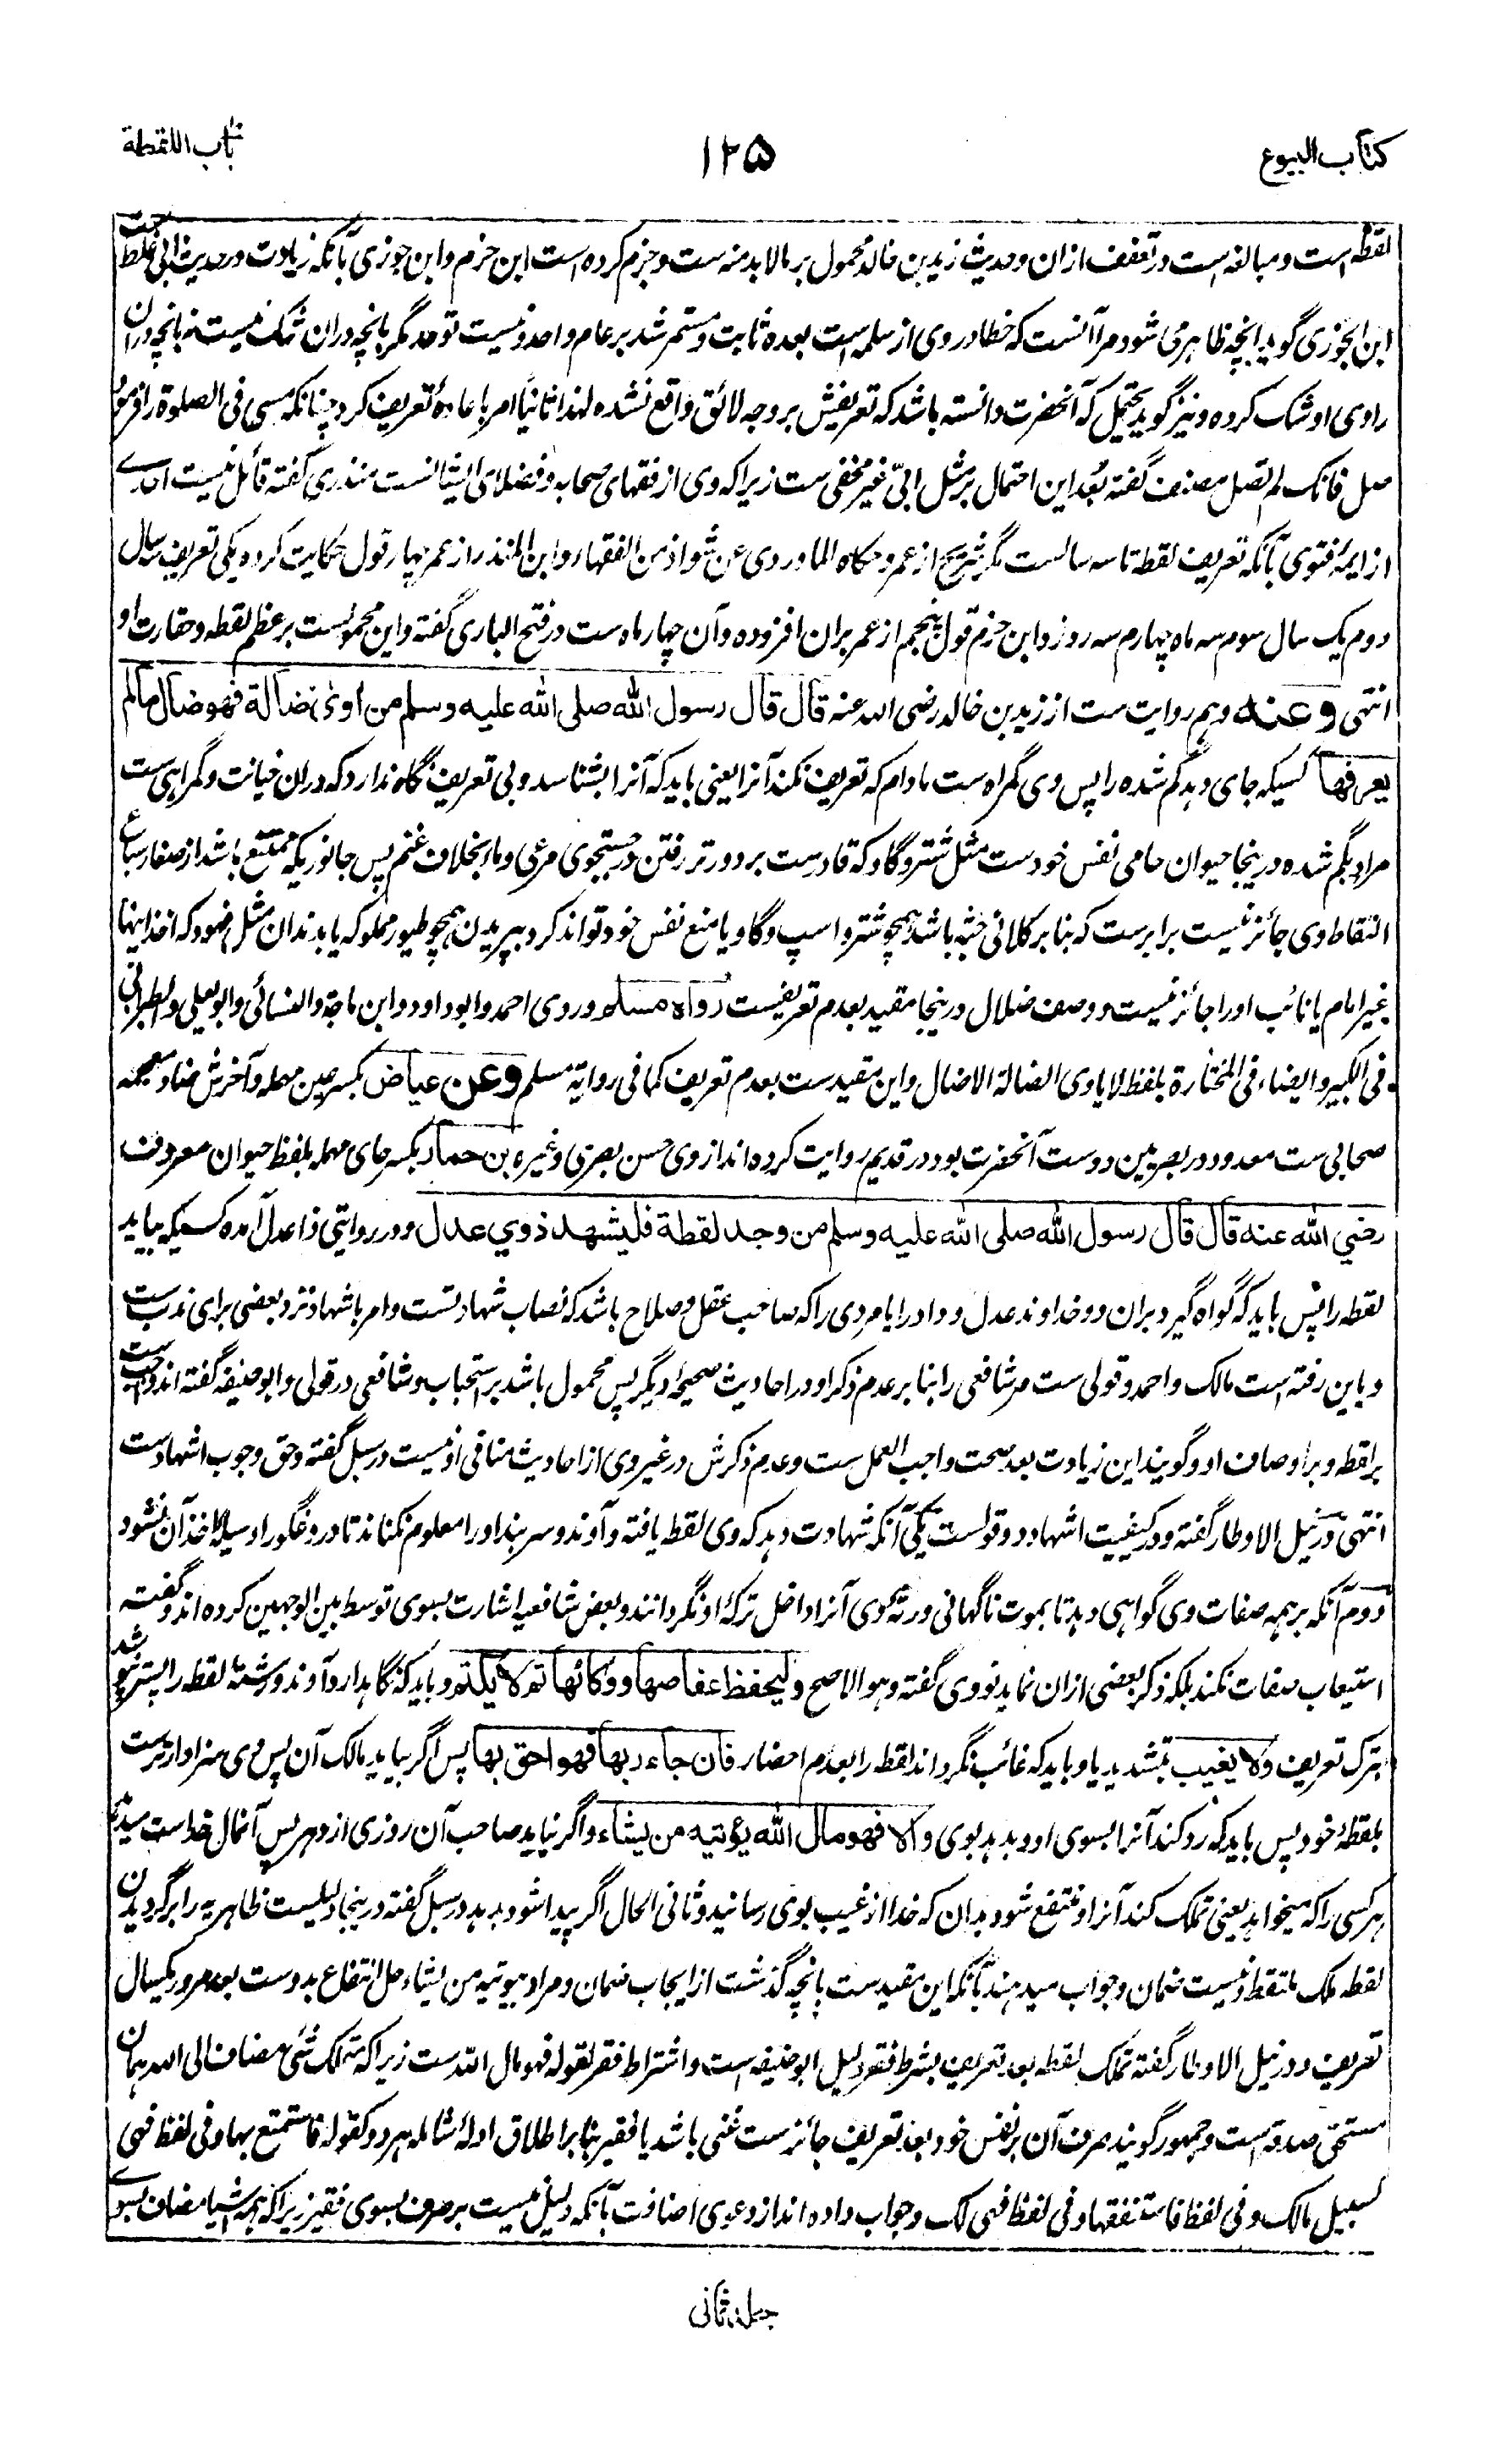 کتاب البیوع
۱۲۵
باب اللقطة
لقطه است و مبالغه است در تعفف ازان و حدیث زید بن خالد محمول بر مالا بدمنه ست و جزم کرده است ابن حزم و ابن جوزی بآنکه زیادت در حدیث ابی غلط ست
ابن الجوزی گوید انچه ظاهر می شود مرا آنست که خطا در وی از سلمه است بعده ثابت و مستمر شد بر عام واحد و نیست توحد مگر بانچه دران شک نیست نه بانچه دران
راوی او شک کرده و نیز گوید یحتمل که آنحضرت دانسته باشد که تعریفش بر وجه لائق واقع نشده لهذا ثانیًا امر با عادهٔ تعریف کرد چنانکه مسی فی الصلوة را فرمود
صل فانک لم تصل مصنف گفته بُعد این احتمال بر مثل ابیّ غیر مخفی ست زیرا که وی از فقهای صحابه و فضلای ایشانست منذری گفته قائل نیست احدے
از ایمهٔ فتوی بآنکه تعریف لقطه تا سه سالست مگر شریح از عمر و حکاه الماوردی عن شواذ من الفقهاء و ابن المنذر از عمر چهار قول حکایت کرده یکی تعریف سه سال
دوم یک سال سوم سه ماه چهارم سه روز و ابن حزم قول پنجم از عمر بران افزوده و آن چهار ماه ست در فتح الباری گفته و این محمولست بر عظم لقطه و حقارت او
انتهی وعنه وهم روایت ست از زید بن خالد رضی الله عنه قال قال رسول الله صلی الله علیه وسلم من اوی ضالة فهو ضال مالم
یعرفها کسیکه جای دهد گم شده را پس وی گمراه ست مادام که تعریف نکند آنرا یعنی باید که آنرا بشناسد و بی تعریف نگاه ندارد که دران خیانت و گمراهی ست
مراد بگم شده درینجا حیوان حامی نفس خودست مثل شتر و گاو که قادرست بر دورتر رفتن در جستجوی مرعی و ماء بخلاف غنم پس جانوریکه ممتنع باشد از صغار سباع
التقاط وی جائز نیست برابرست که بنابر کلانی جثه باشد همچو شتر و اسپ و گاو یا منع نفس خود تواند کرد بپریدن همچو طیور مملوکه یا بدندان مثل فهود که اخذ اینها
غیر امام یا نائب او را جائز نیست و وصف ضلال درینجا مقید بعدم تعریفست رواه مسلم و روی احمد و ابو داود و ابن ماجة و النسائی و ابو یعلی و الطبرانی
فی الکبیر و الضیاء فی المختارة بلفظ لا یاوی الضالة الا ضال و این مقیدست بعدم تعریف کما فی روایة مسلم وعن عیاض بکسر عین مهمله و آخرش ضاد معجمه
صحابی ست معدود در بصریین دوست آنحضرت بود در قدیم روایت کرده اند از وی حسن بصری و غیره بن حمار بکسر حای مهمله بلفظ حیوان معروف
رضي الله عنه قال قال رسول الله صلی الله علیه وسلم من وجد لقطة فلیشهد ذوي عدل و در روایتی ذا عدل آمده کسیکه بیابد
لقطه را پس باید که گواه گیرد بران دو خداوند عدل و داد را یا مردی را که صاحب عقل و صلاح باشد که نصاب شهادتست و امر باشهاد نزد بعضی برای ندب ست
و باین رفته است مالک و احمد و قولی ست مر شافعی را بنابر عدم ذکر او در احادیث صحیحهٔ دیگر پس محمول باشد بر استحباب و شافعی در قولی و ابو حنیفه گفته اند واجب ست
بر لقطه و بر اوصاف او و گویند این زیادت بعد صحت واجب العمل ست و عدم ذکرش در غیر وی از احادیث منافی او نیست در سبل گفته و حق وجوب اشهادست
انتهی در نیل الاوطار گفته و در کیفیت اشهاد دو قولست یکی آنکه شهادت دهد که وی لقطه یافته و آوند و سربند او را معلوم نکناند تا دروغگو را وسیلهٔ اخذ آن نشود
دوم آنکه بر همه صفات وی گواهی دهد تا بموت ناگهانی ورثهٔ وی آنرا داخل ترکهٔ او نگردانند و بعض شافعیه اشارت بسوی توسط بین الوجهین کرده اند و گفته
استیعاب صفات نکند بلکه ذکر بعضی ازان نماید نووی گفته و هو الاصح ولیحفظ عفاصها ووکائها ثم لا یکتم و باید که نگاهدارد آوند و رشتهٔ لقطه را پستر نپوشد
بترک تعریف ولا یغیب بتشدید یا و باید که غائب نگرداند لقطه را بعدم احضار فان جاء ربها فهو احق بها پس اگر بیاید مالک آن پس وی سزاوارترست
بلقطهٔ خود پس باید که رد کند آنرا بسوی او و بدهد بوی والا فهو مال الله یؤتیه من یشاء و اگر نیاید صاحب آن روزی از دهر پس آنمال خداست میدهد
هر کسی را که میخواهد یعنی تملک کند آنرا و منتفع شود بدان که خدا از غیب بوی رسانید و ثانی الحال اگر پیدا شود بدهد در سبل گفته درینجا دلیلیست ظاهریه را بر گردیدن
لقطه ملک ملتقط و نیست ضمان و جواب میدهند بآنکه این مقیدست بانچه گذشت از ایجاب ضمان و مراد بیوتیه من یشاء حل انتفاع بدوست بعد مرور یکسال
تعریف و در نیل الاوطار گفته تملک لقطه بعد تعریف بشرط فقر دلیل ابو حنیفه است و اشتراط فقر لقوله فهو مال الله ست زیرا که تملک شئ مضاف الی الله همان
مستحق صدقه است و جمهور گویند صرف آن بر نفس خود بعد تعریف جائزست غنی باشد یا فقیر بنابر اطلاق ادلهٔ شامله هر دو کقوله فاستمتع بها و فی لفظ فهی
کسبیل مالک و فی لفظ فاستنفقها و فی لفظ فهی لک و جواب داده اند از دعوی اضافت بآنکه دلیل نیست بر صرف بسوی فقیر زیرا که همه اشیا مضاف بسوے
جلد ثانی